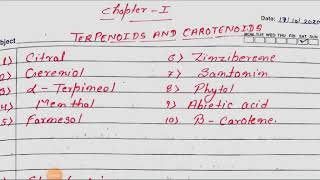 Chapter-I
Date: 17/10/2020
MON TUE WED THU FRI SAT SUN
TERPENOIDS AND CAROTENOIDS
1) Citral 6) Zinziberene
2) Gereniol 7) Santonin
3) α-Terpineol 8) Phytol
4) Menthol 9) Abietic acid
5) Farnesol 10) β-Carotene